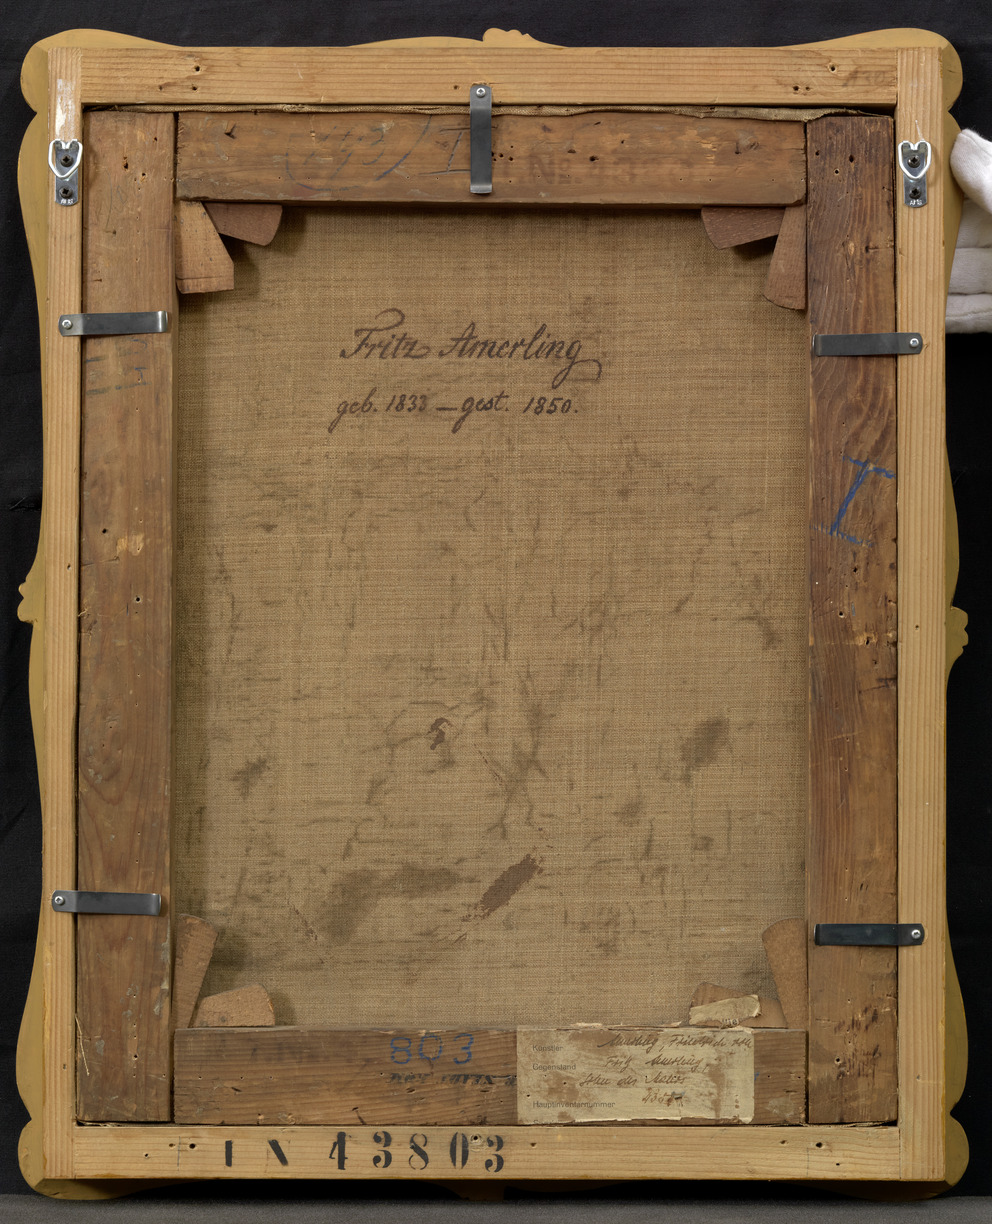 I
Fritz Amerling
geb. 1833 — gest. 1850.
I
803
Künstler Amerling, Friedrich von
Gegenstand Fritz Amerling,
Sohn des Malers
Hauptinventarnummer
IN 43803